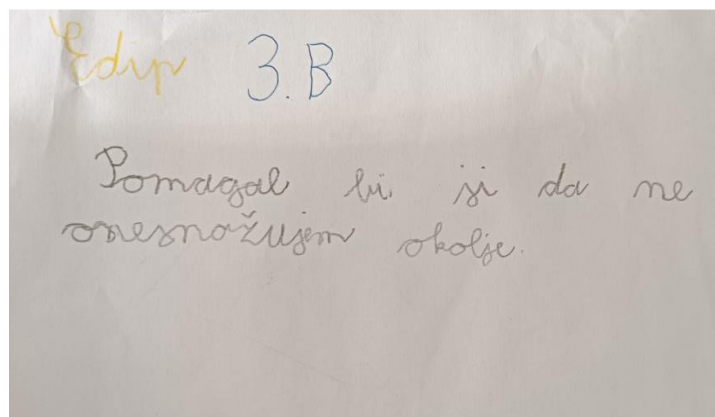 Edip 3.B
Pomagal bi ji da ne
onesnožujem okolje.